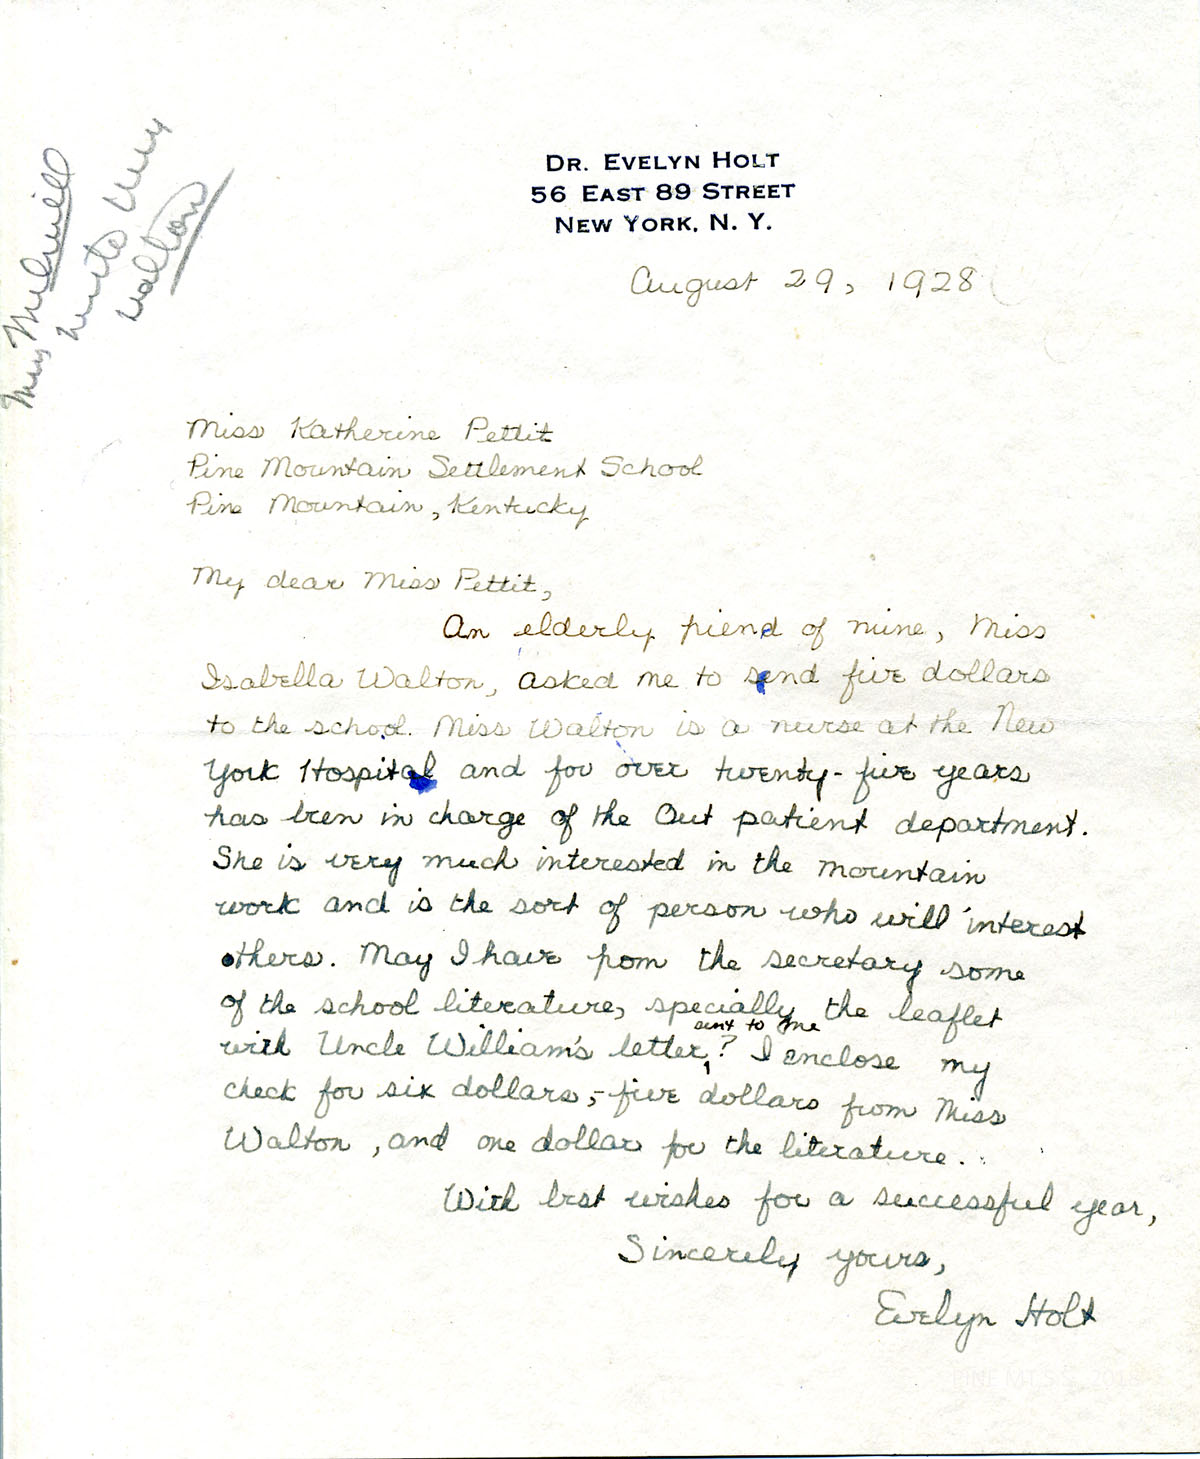 Miss
write Miss
Walton
DR. EVELYN HOLT
56 EAST 89 STREET
NEW YORK, N. Y.
August 29, 1928
Miss Katherine Pettit
Pine Mountain Settlement School
Pine Mountain, Kentucky
My dear Miss Pettit,
An elderly friend of mine, Miss
Isabella Walton, asked me to send five dollars
to the school. Miss Walton is a nurse at the New
York Hospital and for over twenty-five years
has been in charge of the Out patient department.
She is very much interested in the mountain
work and is the sort of person who will interest
others. May I have from the secretary some
of the school literature, specially the leaflet
sent to me
with Uncle William's letter? I enclose my
check for six dollars,- five dollars from Miss
Walton, and one dollar for the literature.
With best wishes for a successful year,
Sincerely yours,
Evelyn Holt